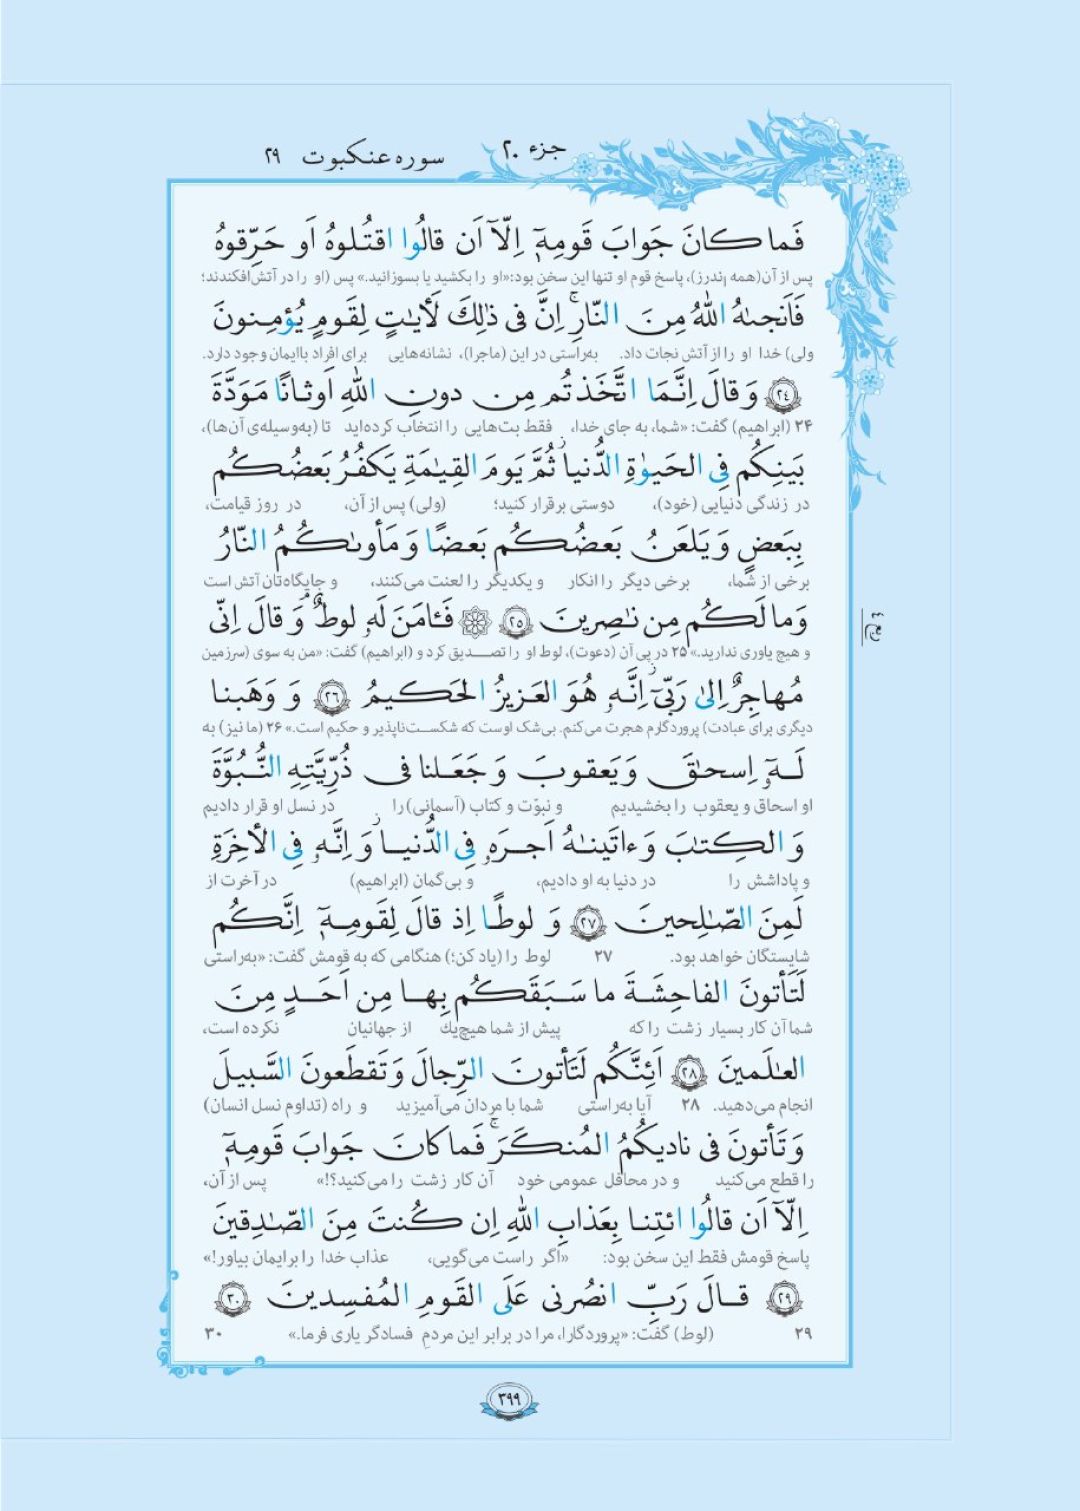 جزء ۲۰
سوره عنکبوت ۲۹
فَما کانَ جَوابَ قَومِهٖٓ اِلّآ اَن قالُوا اقتُلوهُ اَو حَرِّقوهُ
پس از آن(همه اندرز)، پاسخ قوم او تنها این سخن بود:«او را بکشید یا بسوزانید.» پس (او را در آتش افکندند؛
فَاَنجىٰهُ اللّٰهُ مِنَ النّارِ ۚ اِنَّ فی ذٰلِكَ لَأیاتٍ لِقَومٍ یُؤمِنونَ
ولی) خدا او را از آتش نجات داد. به‌راستی در این (ماجرا)، نشانه‌هایی برای افراد باایمان وجود دارد.
﴿٢٤﴾ وَ قالَ اِنَّمَا اتَّخَذتُم مِن دونِ اللّٰهِ اَوثانًا مَوَدَّةَ
۲۴ (ابراهیم) گفت: «شما، به جای خدا، فقط بت‌هایی را انتخاب کرده‌اید تا (به‌وسیله‌ی آن‌ها)،
بَینِکُم فِی الحَیوٰةِ الدُّنیا ۖ ثُمَّ یَومَ القِیٰمَةِ یَکفُرُ بَعضُکُم
در زندگی دنیایی (خود)، دوستی برقرار کنید؛ (ولی) پس از آن، در روز قیامت،
بِبَعضٍ وَ یَلعَنُ بَعضُکُم بَعضًا وَ مَأوىٰکُمُ النّارُ
برخی از شما، برخی دیگر را انکار و یکدیگر را لعنت می‌کنند، و جایگاه‌تان آتش است
وَما لَکُم مِن ناٰصِرینَ ﴿٢٥﴾ ۞ فَـٔامَنَ لَهٗ لوطٌ ۘ وَ قالَ اِنّی
و هیچ یاوری ندارید.» ۲۵ در پی آن (دعوت)، لوط او را تصدیق کرد و (ابراهیم) گفت: «من به سوی (سرزمین
مُهاجِرٌ اِلىٰ رَبّیٓ ۖ اِنَّهٗ هُوَ العَزیزُ الحَکیمُ ﴿٢٦﴾ وَ وَهَبنا
دیگری برای عبادت) پروردگارم هجرت می‌کنم. بی‌شک اوست که شکست‌ناپذیر و حکیم است.» ۲۶ (ما نیز) به
لَهٗٓ اِسحاٰقَ وَ یَعقوبَ وَ جَعَلنا فی ذُرِّیَّتِهِ النُّبُوَّةَ
او اسحاق و یعقوب را بخشیدیم و نبوّت و کتاب (آسمانی) را در نسل او قرار دادیم
وَ الکِتٰبَ وَ ءاتَینٰهُ اَجرَهٗ فِی الدُّنیا ۖ وَ اِنَّهٗ فِی الأخِرَةِ
و پاداشش را در دنیا به او دادیم، و بی‌گمان (ابراهیم) در آخرت از
لَمِنَ الصّاٰلِحینَ ﴿٢٧﴾ وَ لوطًا اِذ قالَ لِقَومِهٖٓ اِنَّکُم
شایستگان خواهد بود. ۲۷ لوط را (یاد کن؛) هنگامی که به قومش گفت: «به‌راستی
لَتَأتونَ الفاحِشَةَ ما سَبَقَکُم بِها مِن اَحَدٍ مِنَ
شما آن کار بسیار زشت را که پیش از شما هیچ‌یك از جهانیان نکرده است،
العاٰلَمینَ ﴿٢٨﴾ اَئِنَّکُم لَتَأتونَ الرِّجالَ وَ تَقطَعونَ السَّبیلَ
انجام می‌دهید. ۲۸ آیا به‌راستی شما با مردان می‌آمیزید و راه (تداوم نسل انسان)
وَ تَأتونَ فی نادیکُمُ المُنکَرَ ۚ فَما کانَ جَوابَ قَومِهٖٓ
را قطع می‌کنید و در محافل عمومی خود آن کار زشت را می‌کنید؟!» پس از آن،
اِلّآ اَن قالُوا ائتِنا بِعَذابِ اللّٰهِ اِن کُنتَ مِنَ الصّاٰدِقینَ
پاسخ قومش فقط این سخن بود: «اگر راست می‌گویی، عذاب خدا را برایمان بیاور!»
﴿٢٩﴾ قالَ رَبِّ انصُرنی عَلَی القَومِ المُفسِدینَ ﴿٣٠﴾
۲۹ (لوط) گفت: «پروردگارا، مرا در برابر این مردمِ فسادگر یاری فرما.» ۳۰
ربع ٤
۳۹۹